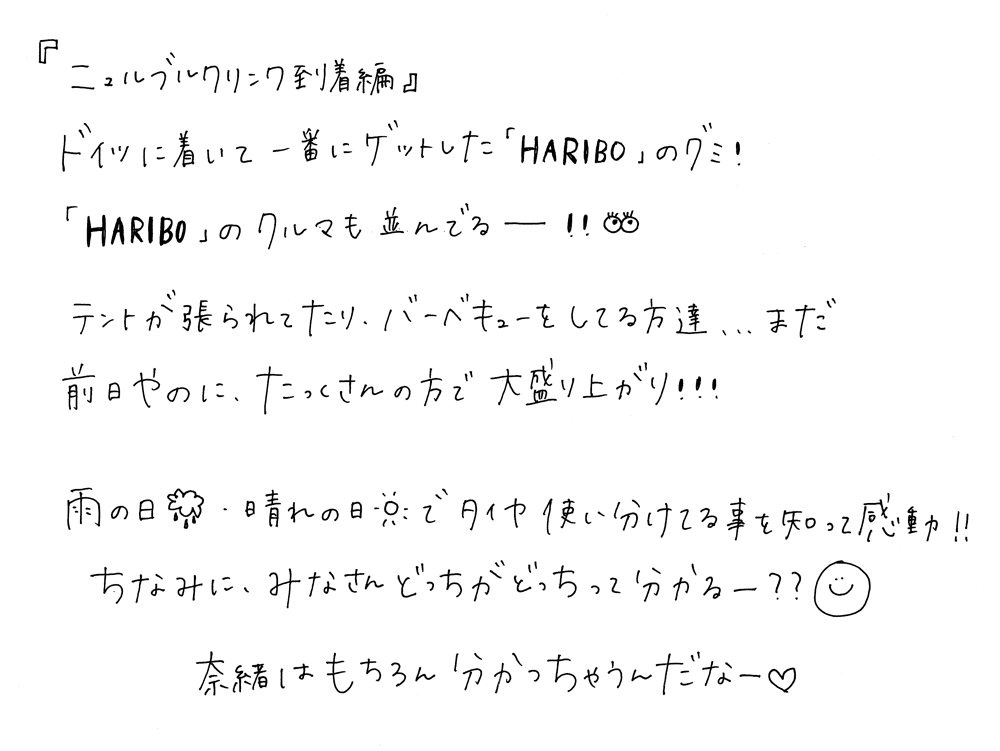 『ニュルブルクリンク到着編』
ドイツに着いて一番にゲットした「HARIBO」のグミ!
「HARIBO」のクルマも並んでるー!!
テントが張られてたり、バーベキューをしてる方達...まだ
前日やのに、たっくさんの方で大盛り上がり!!!
雨の日・晴れの日でタイヤ使い分けてる事を知って感動!!
ちなみに、みなさんどっちがどっちって分かるー??
奈緒はもちろん分かっちゃうんだなー♡